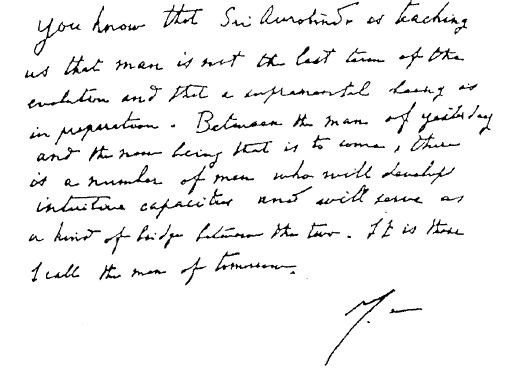 You know that Sri Aurobindo is teaching
us that man is not the last term of the
evolution and that a supramental being is
in preparation. Between the man of yesterday
and the new being that is to come, there
is a number of men who will develop
intuitive capacities and will serve as
a kind of bridge between the two. It is these
I call the men of tomorrow.